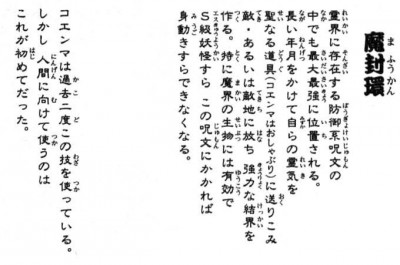 魔封環
まふうかん
霊界に存在する防御系呪文の
中でも最大最強に位置される。
長い年月をかけて自らの霊気を
聖なる道具（コエンマはおしゃぶり）に送りこみ
敵・あるいは敵地に放ち 強力な結界を
作る。特に魔界の生物には有効で
S級妖怪すら この呪文にかかれば
身動きすらできなくなる。
コエンマは過去二度この技を使っている。
しかし 人間に向けて使うのは
これが初めてだった。